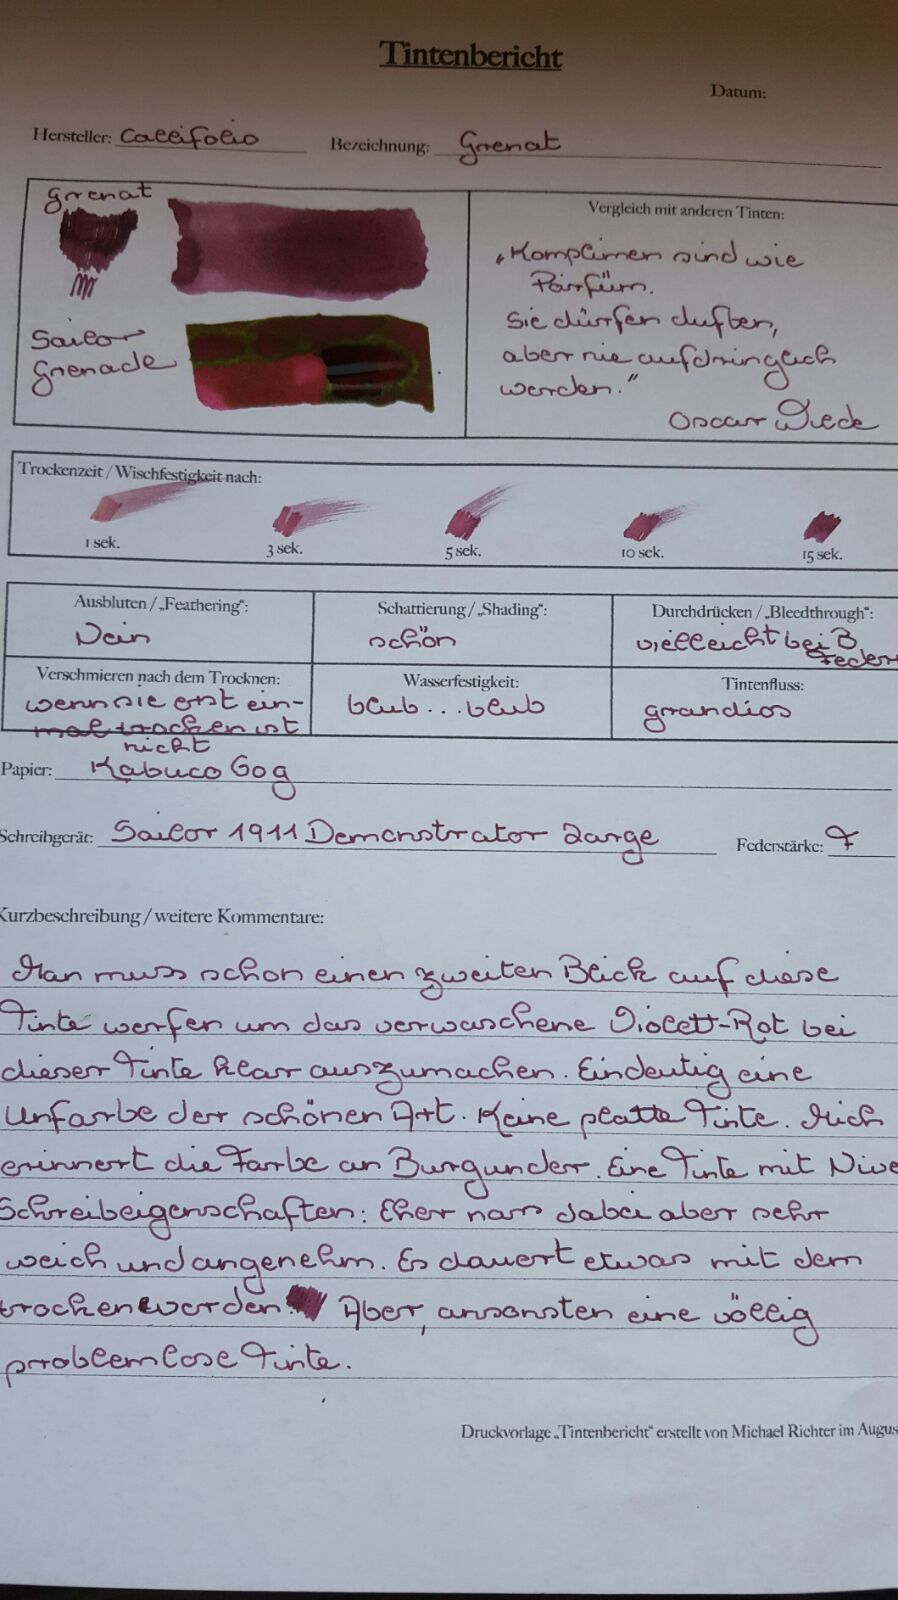 Tintenbericht
Datum:
Hersteller: Callifolio Bezeichnung: Grenat
Grenat
Sailor
Grenade
Vergleich mit anderen Tinten:
„Komplimen sind wie
Parfüm.
Sie dürfen duften,
aber nie aufdringlich
werden."
Oscar Wilde
Trockenzeit / Wischfestigkeit nach:
1 sek. 3 sek. 5 sek. 10 sek. 15 sek.
Ausbluten / „Feathering": Schattierung / „Shading": Durchdrücken / „Bleedthrough":
Nein schön vielleicht bei B
Feder
Verschmieren nach dem Trocknen: Wasserfestigkeit: Tintenfluss:
wenn sie erst ein- blub...blub grandios
mal trocken ist
nicht
Papier: Kabuco 60g
Schreibgerät: Sailor 1911 Demonstrator Large Federstärke: F
Kurzbeschreibung / weitere Kommentare:
Man muss schon einen zweiten Blick auf diese
Tinte werfen um das verwaschene Violett-Rot bei
dieser Tinte klar auszumachen. Eindeutig eine
Unfarbe der schönen Art. Keine platte Tinte. Mich
erinnert die Farbe an Burgunder. Eine Tinte mit Nive
Schreibeigenschaften: Eher nass dabei aber sehr
weich und angenehm. Es dauert etwas mit dem
trocken werden. Aber, ansonsten eine völlig
problemlose Tinte.
Druckvorlage „Tintenbericht" erstellt von Michael Richter im Augus